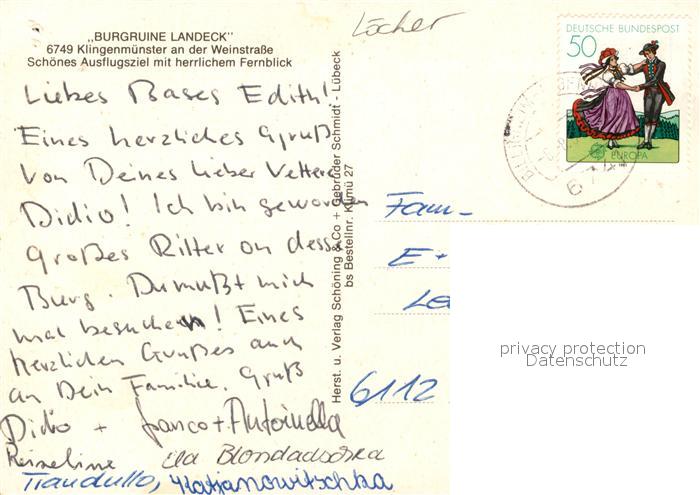 „BURGRUINE LANDECK"
6749 Klingenmünster an der Weinstraße
Schönes Ausflugsziel mit herrlichem Fernblick
Liebes Bases Edith!
Eines herzliches Gruß
von Deines lieber Vetter
Didio! Ich bin geworden
Großes Ritter on dessa
Burg. Du mußt mich
mal besuchen! Eines
herzlichen Grußes auch
an Dein Familie. Gruß
Didio + Franco + Antoinella
ila Blondadschka
Traudullo, Katjanowitschka
Herst. u. Verlag Schöning & Co + Gebrüder Schmidt - Lübeck
bs Bestellnr. Klmü 27
Löcher
DEUTSCHE BUNDESPOST
50
EUROPA
1981
Fam
E
Le
6112
privacy protection
Datenschutz